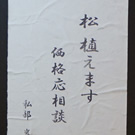 松植えます
価格応相談
私部